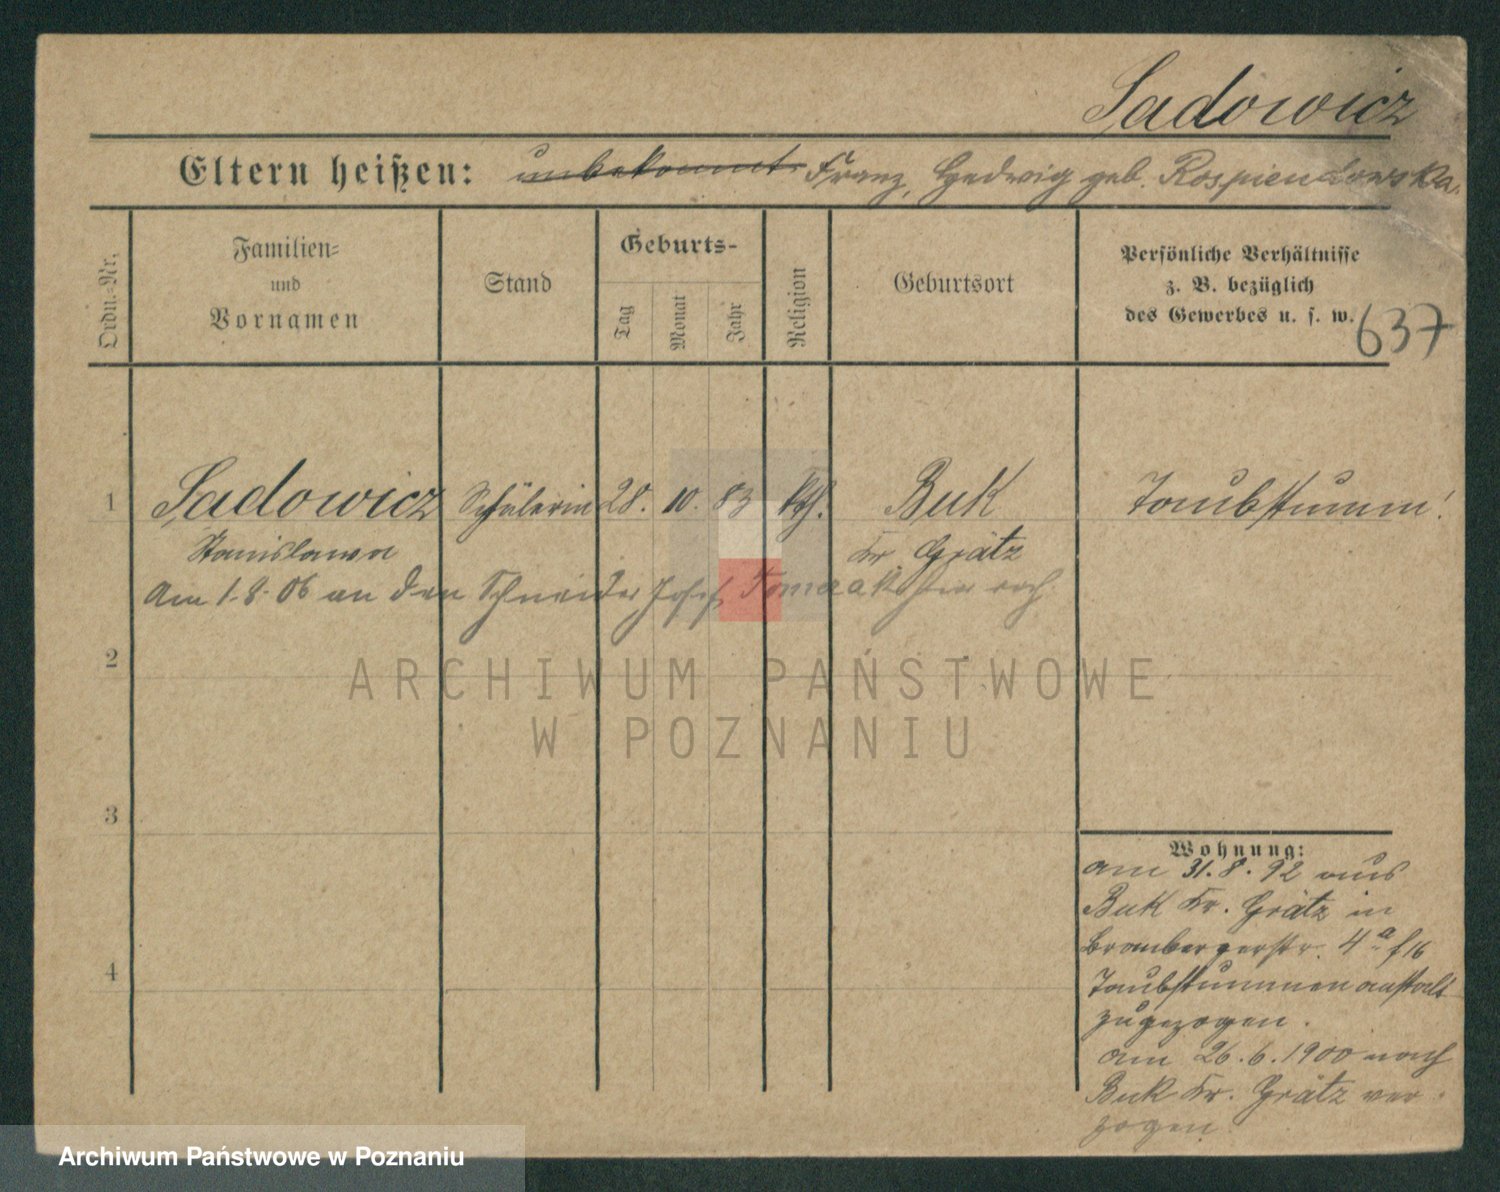 Sadowicz
Eltern heißen: unbekannt Franz, Hedwig geb. Rospiendowska.
Ordn.-Nr.
Familien- und Vornamen
Stand
Geburts-
Tag
Monat
Jahr
Religion
Geburtsort
Persönliche Verhältnisse
z. B. bezüglich
des Gewerbes u. s. w.
637
1 Sadowicz Schülerin 28. 10. 83 kth. Buk Taubstumm!
Stanislawa Kr. Grätz
Am 1.8.06 an den Schneider Josef Tomczak hier
2
3
4
Wohnung:
am 31.8.92 aus
Buk Kr. Grätz in
Brombergerstr. 4a
Taubstummenanstalt
zugezogen.
am 26.6.1900 nach
Buk Kr. Grätz ver
zogen.
ARCHIWUM PAŃSTWOWE
W POZNANIU
Archiwum Państwowe w Poznaniu